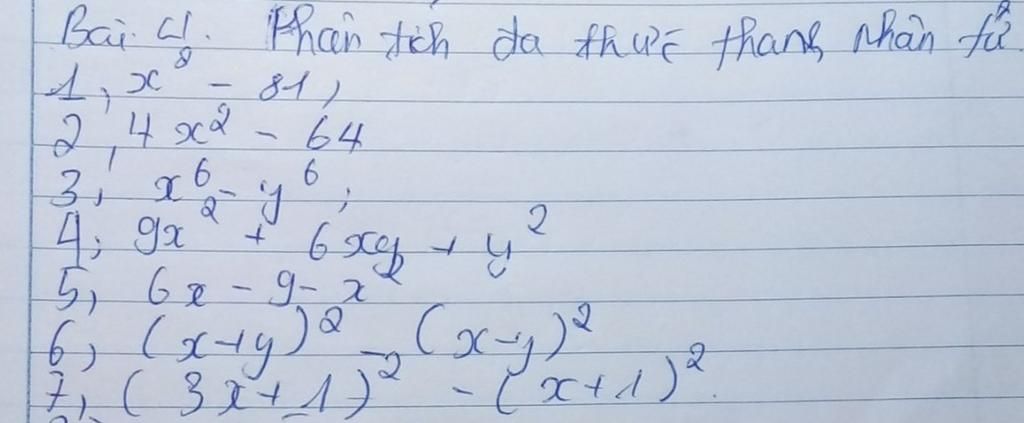 Bài 4. Phân tích đa thức thành nhân tử
1, x⁸ - 81,
2, 4x² - 64
3, x⁶ - y⁶;
4, 9x² + 6xy + y²
5, 6x - 9 - x²
6, (x+y)² - (x-y)²
7, (3x+1)² - (x+1)².